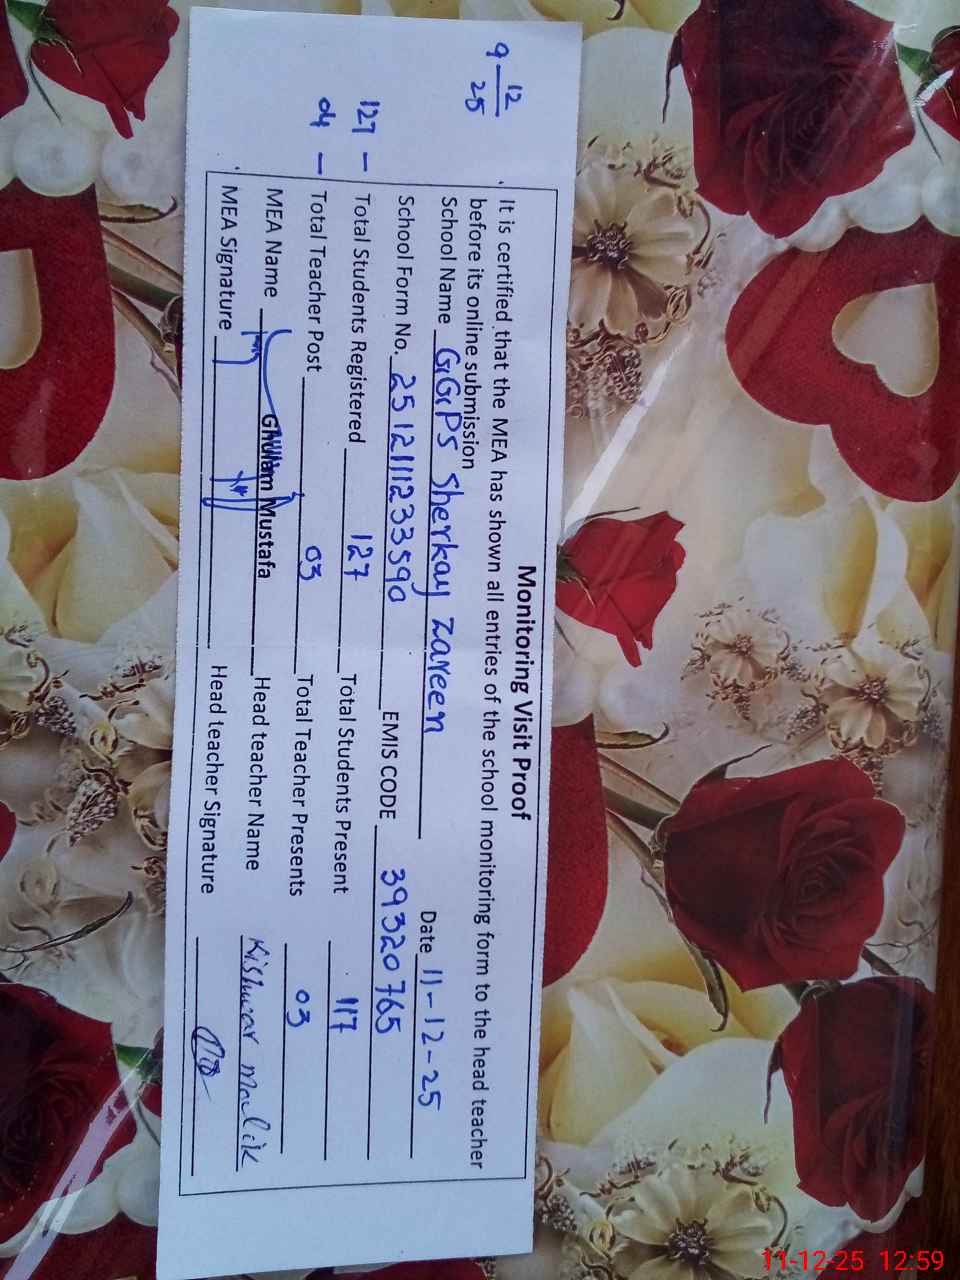 9 12/25
127 –
04 –
Monitoring Visit Proof
It is certified that the MEA has shown all entries of the school monitoring form to the head teacher
before its online submission
School Name GGPS Sherkay Zareen Date 11-12-25
School Form No. 2512111233590 EMIS CODE 39320765
Total Students Registered 127 Total Students Present 117
Total Teacher Post 03 Total Teacher Presents 03
MEA Name Ghulam Mustafa Head teacher Name Kishwar Malik
MEA Signature Head teacher Signature
11-12-25 12:59